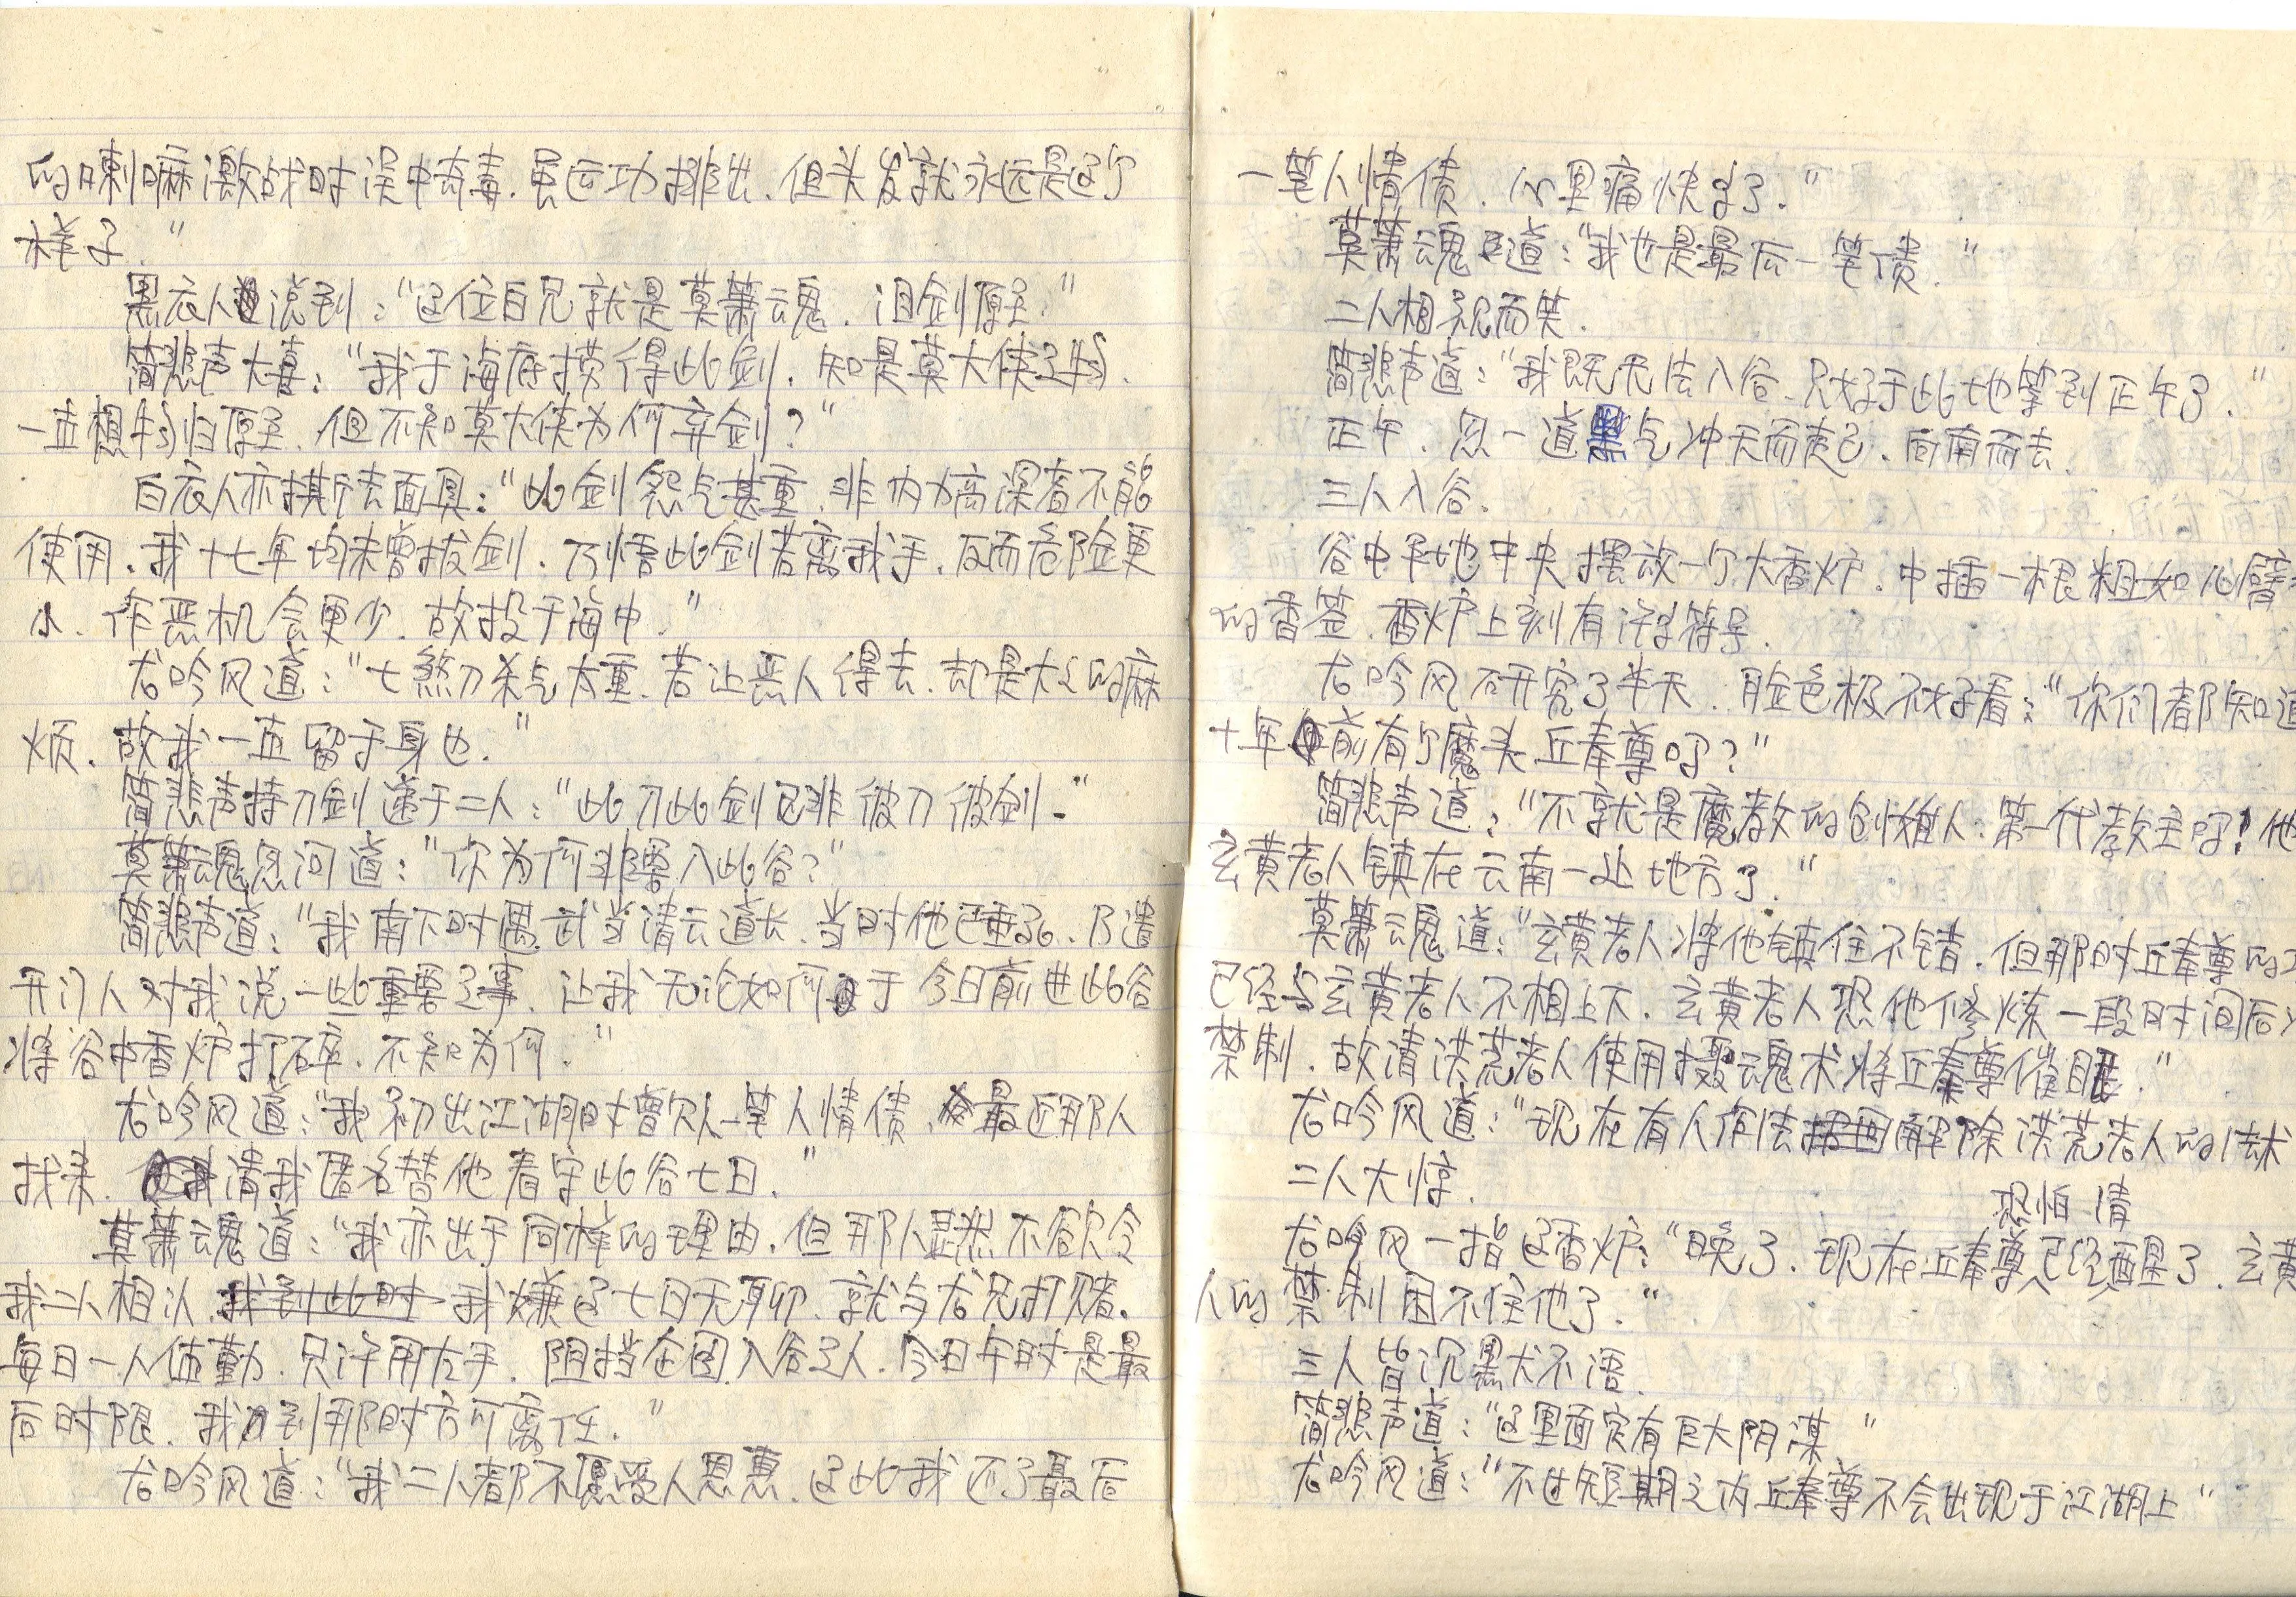 的喇嘛激战时误中奇毒.虽运功排出.但头发就永远是这个
样子."
黑衣人说到:"这位白兄就是莫箫魂.泪剑原主."
简悲声大喜:"我于海底捞得此剑.知是莫大侠之物.
一直想物归原主.但不知莫大侠为何弃剑?"
白衣人亦摘去面具:"此剑怨气甚重.非内力高深者不能
使用.我十七年均未曾拔剑.乃悟此剑若离我手.反而危险更
小.作恶机会更少.故投于海中."
尤吟风道:"七煞刀杀气太重.若让恶人得去.却是大大的麻
烦.故我一直留于身也."
简悲声持刀剑递于二人:"此刀此剑已非彼刀彼剑."
莫箫魂忽问道:"你为何非要入此谷?"
简悲声道:"我南下时遇武当清云道长.当时他已垂死.乃遣
开门人对我说一些重要之事.让我无论如何于今日前进此谷
将谷中香炉打碎.不知为何."
尤吟风道:"我初出江湖时曾欠人一笔人情债.最近那人
找来.请我匿名替他看守此谷七日."
莫箫魂道:"我亦出于同样的理由.但那人显然不欲令
我二人相认.我到此时我嫌这七日无聊.就与尤兄打赌.
每日一人值勤.只许用左手.阻挡企图入谷之人.今日午时是最
后时限.我到那时方可离任."
尤吟风道:"我二人都不愿受人恩惠.这此我还了最后
一笔人情债.心里痛快多了."
莫箫魂道:"我也是最后一笔债."
二人相视而笑.
简悲声道:"我既无法入谷.只好于此地等到正午了."
正午.忽一道黑气冲天而起.向南而去.
三人入谷.
谷中平地中央摆放一个大香炉.中插一根粗如儿臂
的香签.香炉上刻有许多符号.
尤吟风研究了半天.脸色极不好看:"你们都知道
十年前有个魔头丘奉尊吗?"
简悲声道:"不就是魔教的创始人.第一代教主吗!他
玄黄老人镇在云南一处地方了."
莫箫魂道:"玄黄老人将他镇住不错.但那时丘奉尊的
已经与玄黄老人不相上下.玄黄老人恐他修炼一段时间后
禁制.故请洪荒老人使用摄魂术将丘奉尊催眠."
尤吟风道:"现在有人作法解除洪荒老人的法术
二人大惊.
恐怕 清
尤吟风一指这香炉:"晚了.现在丘奉尊已经醒了.玄黄
人的禁制困不住他了."
三人皆沉默不语.
简悲声道:"这里面定有巨大阴谋."
尤吟风道:"不过短期之内丘奉尊不会出现于江湖上"